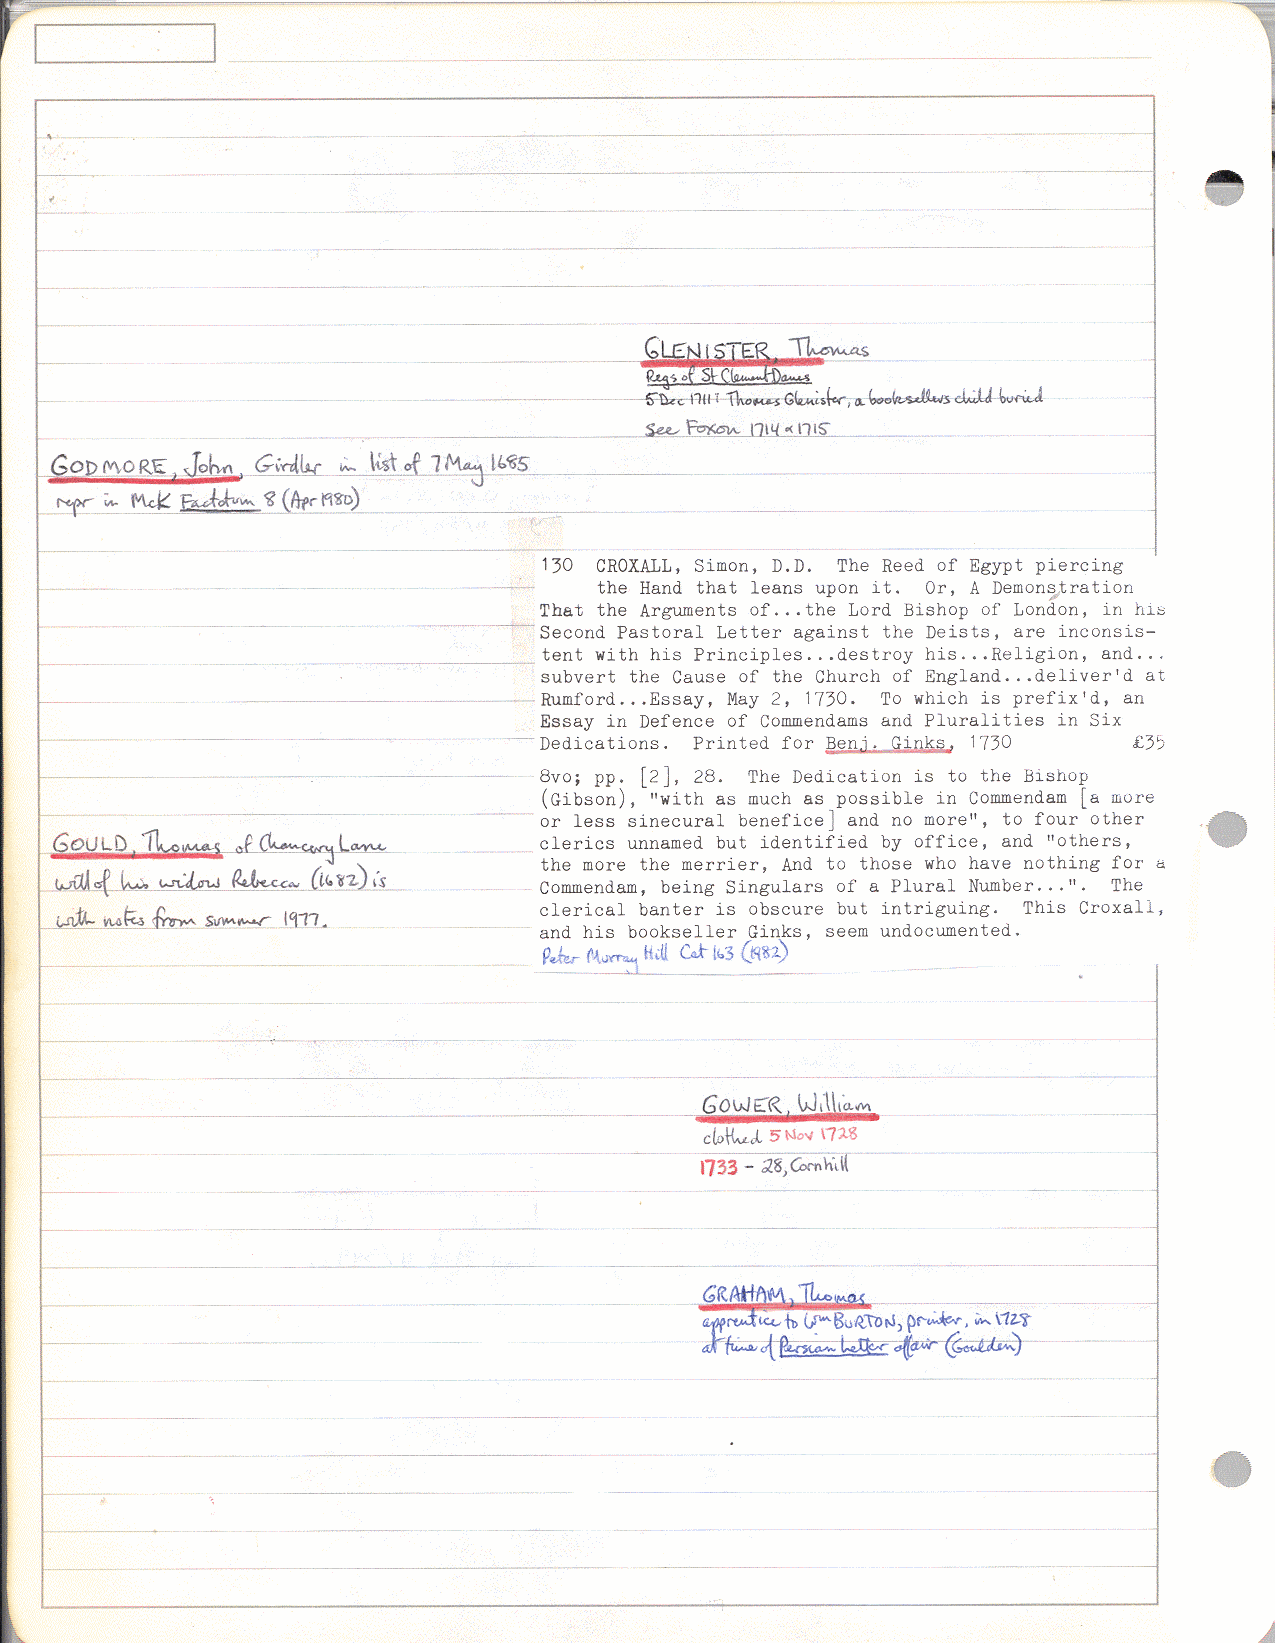 GLENISTER, Thomas
Regs of St Clement Danes
5 Dec 1711: Thomas Glenister, a booksellers child buried
See Foxon 1714 & 1715
GODMORE, John, Girdler in list of 7 May 1685
repr in McK Factotum 8 (Apr 1980)
130 CROXALL, Simon, D.D. The Reed of Egypt piercing
the Hand that leans upon it. Or, A Demonstration
That the Arguments of...the Lord Bishop of London, in his
Second Pastoral Letter against the Deists, are inconsis-
tent with his Principles...destroy his...Religion, and...
subvert the Cause of the Church of England...deliver'd at
Rumford...Essay, May 2, 1730. To which is prefix'd, an
Essay in Defence of Commendams and Pluralities in Six
Dedications. Printed for Benj. Ginks, 1730 £35
8vo; pp. [2], 28. The Dedication is to the Bishop
(Gibson), "with as much as possible in Commendam [a more
or less sinecural benefice] and no more", to four other
clerics unnamed but identified by office, and "others,
the more the merrier, And to those who have nothing for a
Commendam, being Singulars of a Plural Number...". The
clerical banter is obscure but intriguing. This Croxall,
and his bookseller Ginks, seem undocumented.
Peter Murray Hill Cat 163 (1982)
GOULD, Thomas of Chancery Lane
will of his widow Rebecca (1682) is
with notes from summer 1977.
GOWER, William
clothed 5 Nov 1728
1733 - 28, Cornhill
GRAHAM, Thomas
apprentice to Wm BURTON, printer, in 1728
at time of Persian Letter affair (Goulden)